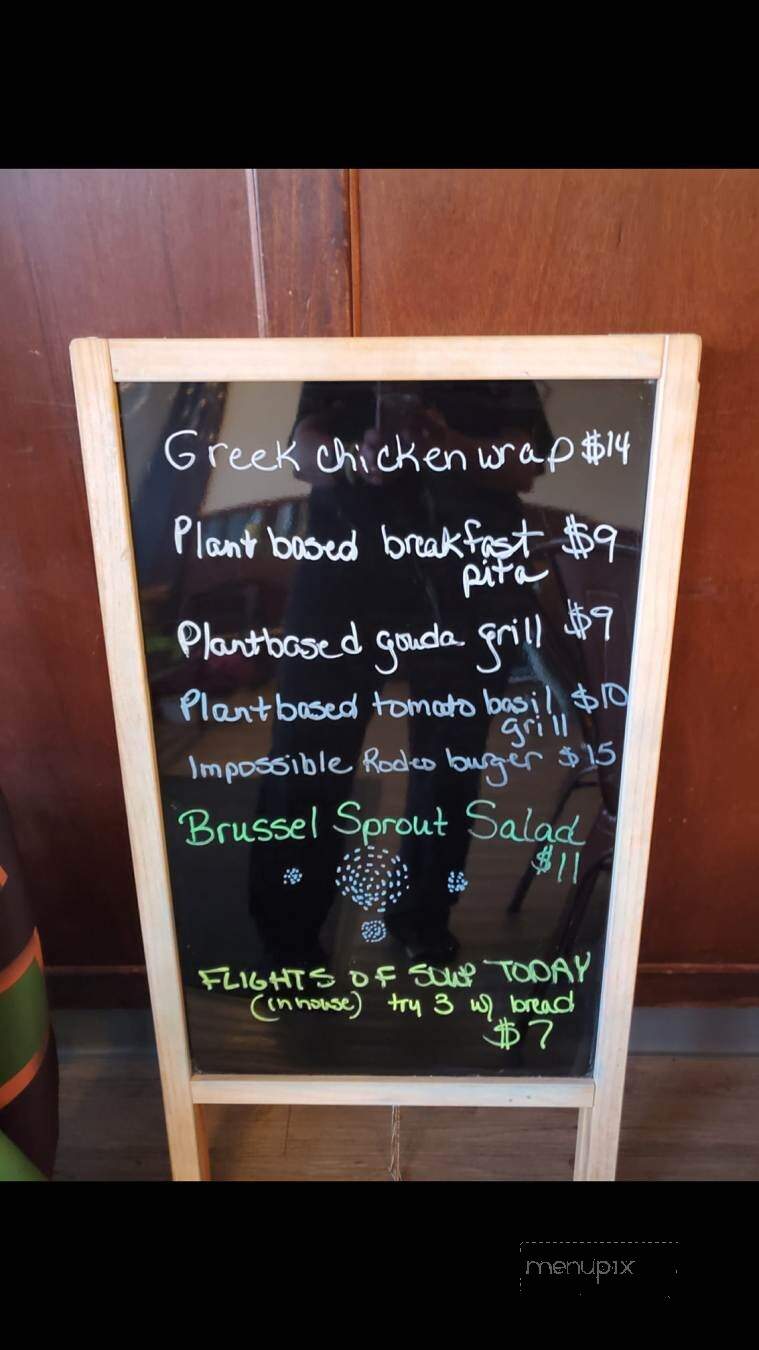 Greek chicken wrap $14
Plant based breakfast $9
pita
Plantbased gouda grill $9
Plantbased tomato basil $10
grill
Impossible Rodeo burger $15
Brussel Sprout Salad
$11
FLIGHTS OF SOUP TODAY
(in house) try 3 w/ bread
$7
menupix